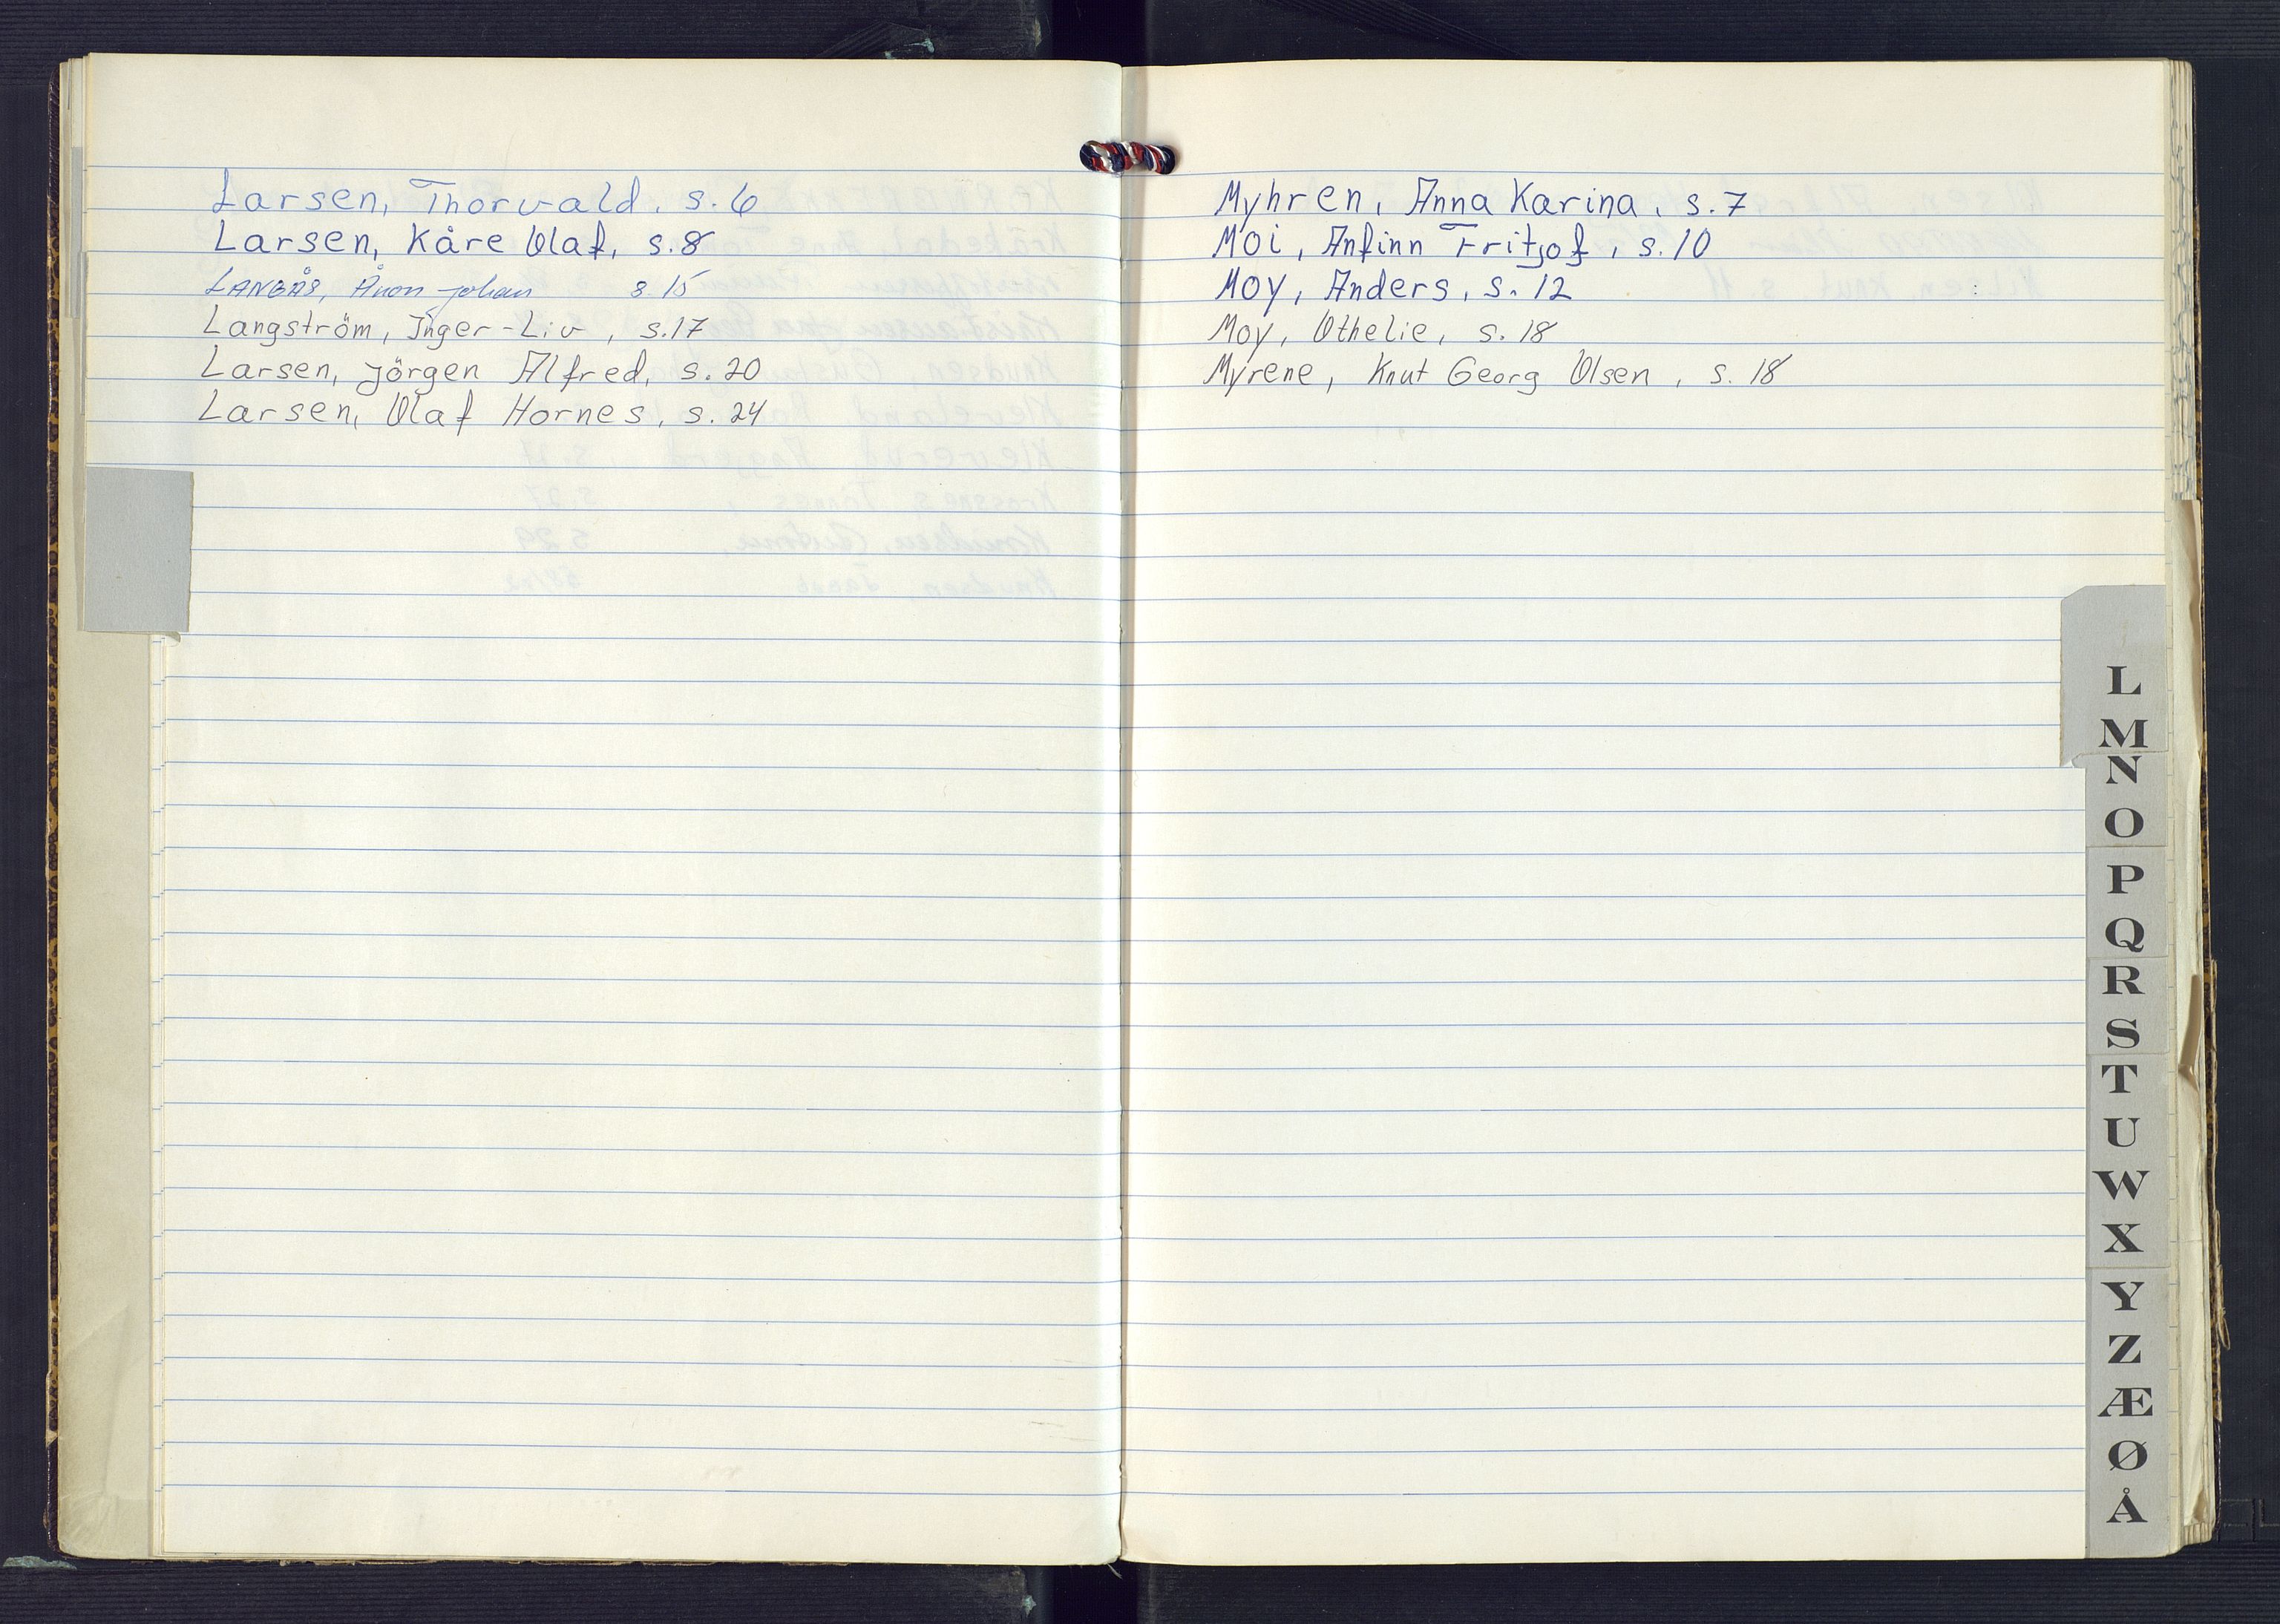 Larsen, Thorvald, s. 6
Larsen, Kåre Olaf, s. 8
LANGÅS, Ånon Johan s. 15
Langström, Inger-Liv, s. 17
Larsen, Jörgen Alfred, s. 20
Larsen, Olaf Hornes, s. 24
Myhren, Anna Karina, s. 7
Moi, Anfinn Fritjof, s. 10
Moy, Anders, s. 12
Moy, Othelie, s. 18
Myrene, Knut Georg Olsen, s. 18
L
M
N
O
P
Q
R
S
T
U
W
X
Y
Z
Æ
Ø
Å